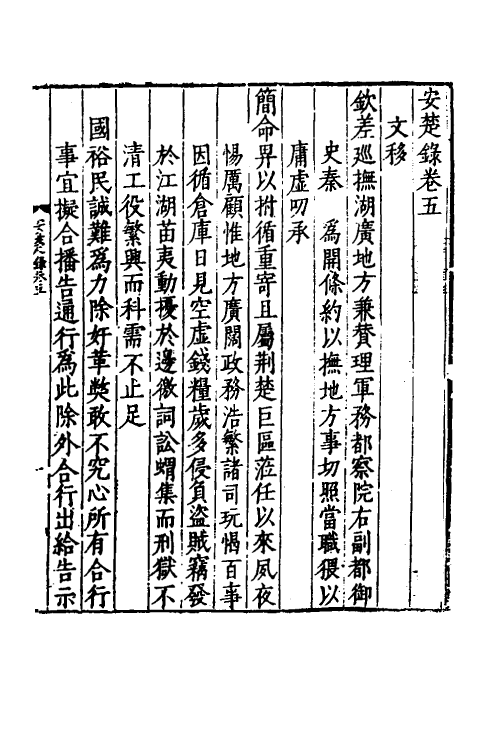 安楚錄卷五
文移
欽差巡撫湖廣地方兼贊理軍務都察院右副都御
史秦　為開條約以撫地方事切照當職猥以
庸虛叨承
簡命畀以拊循重寄且屬荆楚巨區蒞任以來夙夜
惕厲顧惟地方廣闊政務浩繁諸司玩愒百事
因循倉庫日見空虛錢糧歲多侵負盗賊竊發
於江湖苗夷動擾於邊徼詞訟蝟集而刑獄不
清工役繁興而科需不止足
國裕民誠難為力除奸革獘敢不究心所有合行
事宜擬合播告通行為此除外合行出給告示
安楚錄卷五